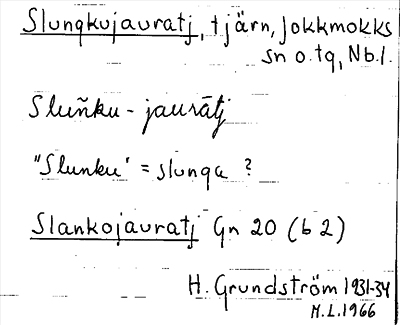 Slungkujauratj, tjärn, Jokkmokks
sn o. tg, Nb.l.
Sluñku - jaurātj
"Slunku" = slunga ?
Slankojauratj Gn 20 (b 2)
H. Grundström 1931-34
M.L. 1966